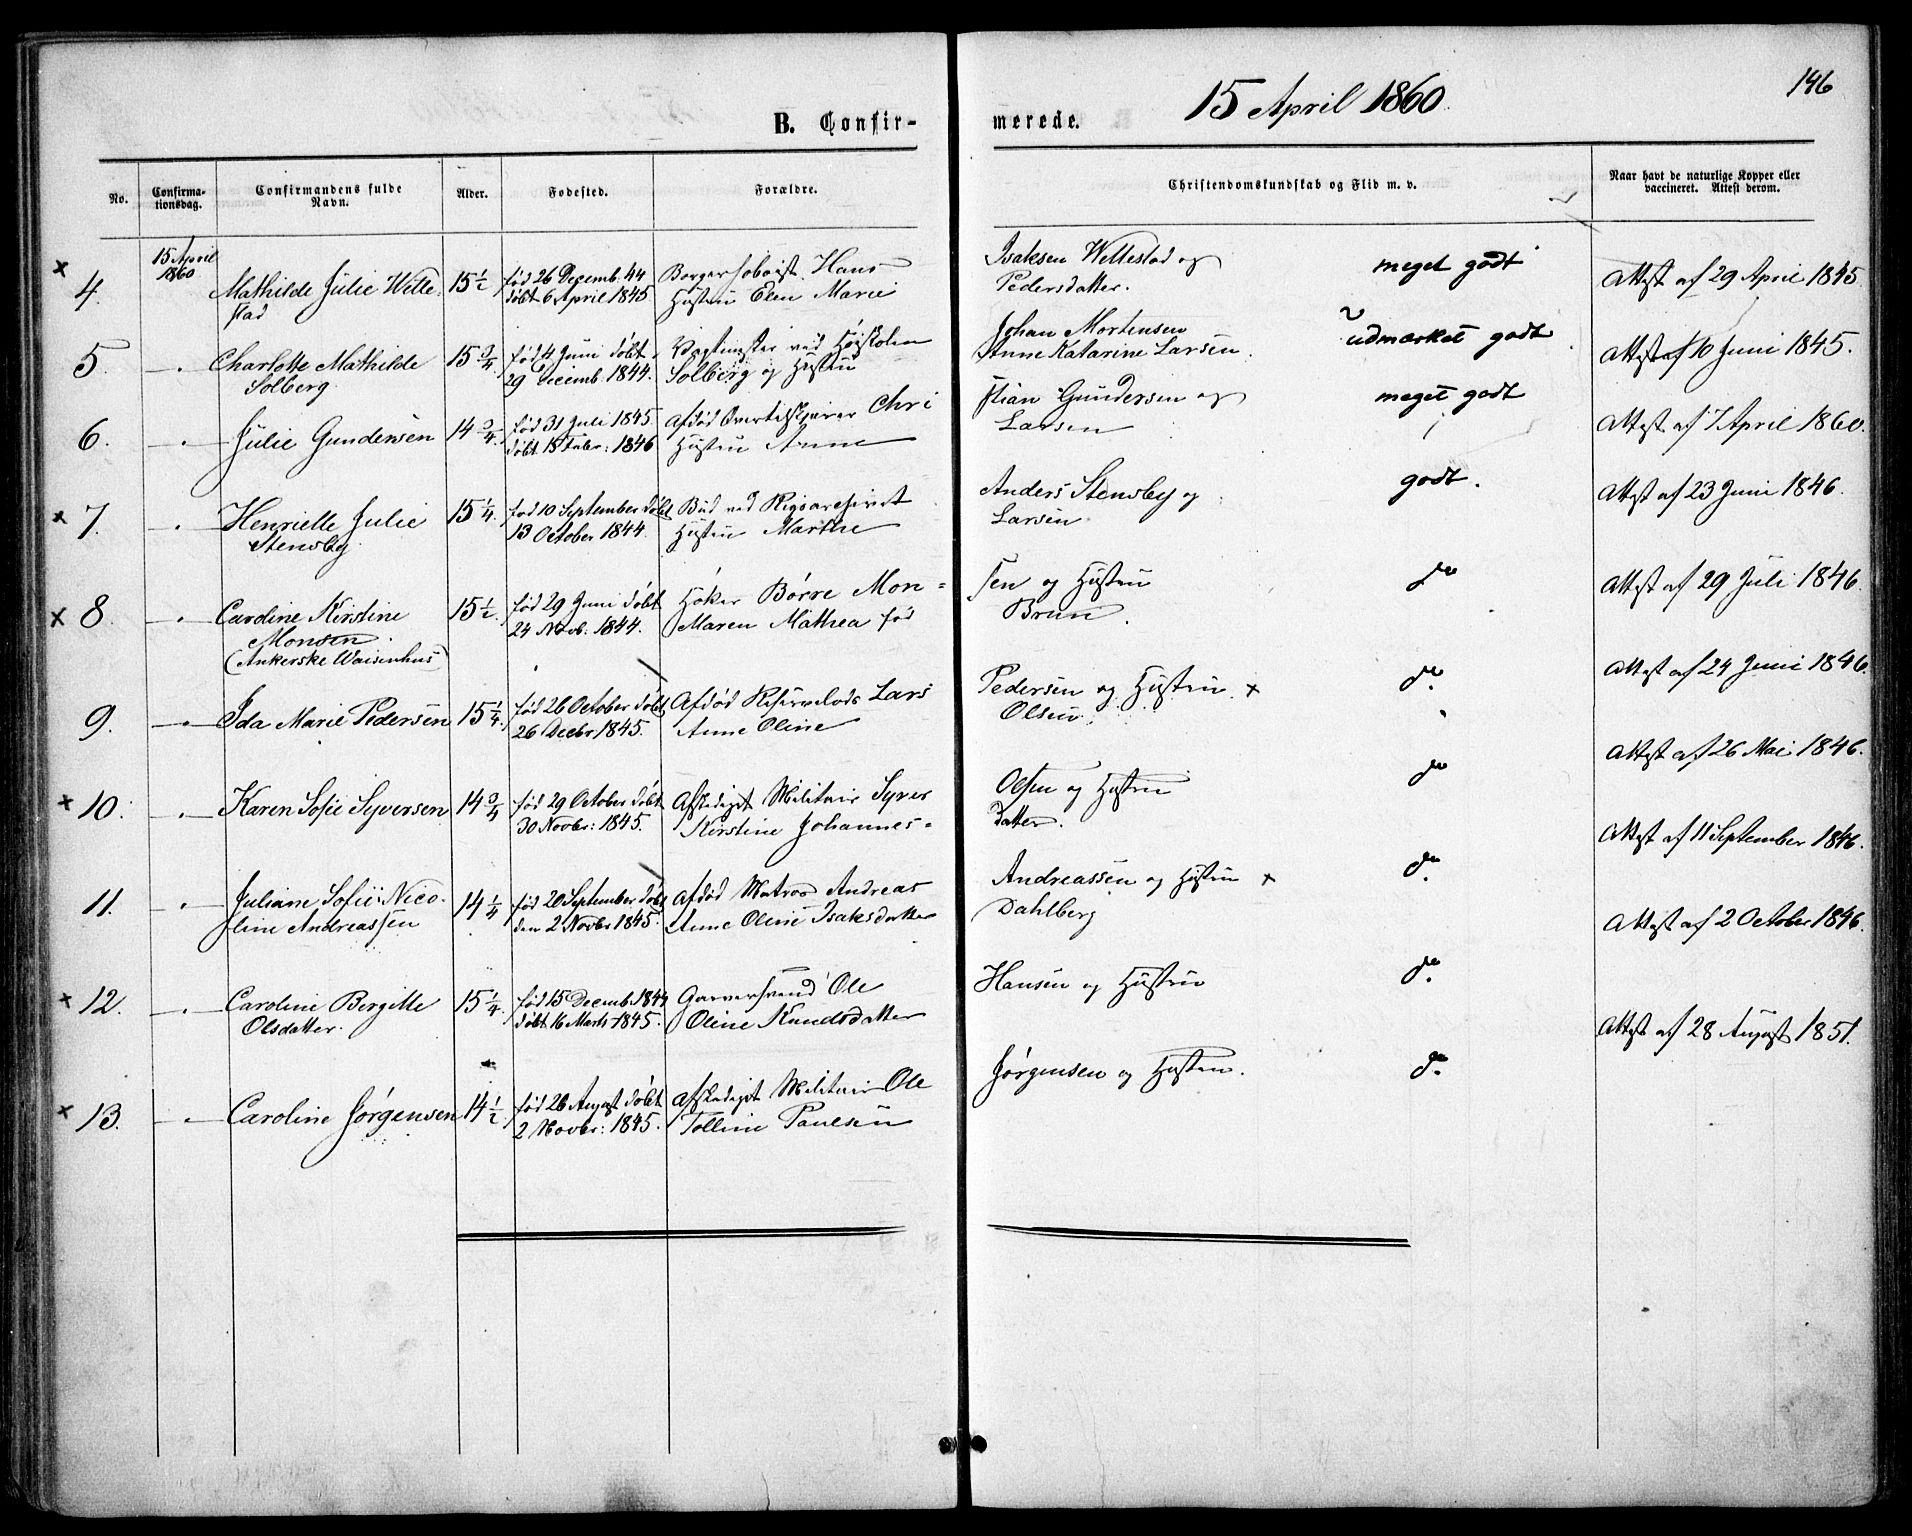 146
B. Confirmerede. 15 April 1860
No. Confirmationsdag. Confirmandens fulde Navn. Alder. Fødested. Forældre. Christendomskundskab og Flid m. v. Naar havt de naturlige Kopper eller vaccineret. Attest derom.
× 4. 15 April 1860 Mathilde Julie Wettestad 15 1/2 født 26 Decemb: 44 døbt 6 April 1845 Borger Hoboist Hans Isaksen Wettestad og
Hustru Elen Marie Pedersdatter. meget godt Attest af 29 April 1845
5. — " — Charlotte Mathilde Solberg 15 3/4 født 4 Juni døbt 29 Decemb. 1844. Vagtmester ved Høiskolen Johan Mortensen
Solberg og Hustru Anne Katarine Larsen. udmærket godt Attest af 10 Juni 1845.
6. — " — Julie Gundersen 14 3/4. født 31 Juli 1845 døbt 15 Febr: 1846 Afdød Christian Gundersen og
Hustru Anne Larsen meget godt Attest af 7 April 1860.
× 7. " Henriette Julie Stensby 15 1/4. født 10 September døbt 13 October 1844. Bud ved Rigsarchivet Anders Stensby og
Hustru Marthe Larsen godt. Attest af 23 Juni 1846.
× 8. — " — Caroline Kirstine Monsen (Ankerske Waisenhus) 15 1/2. født 29 Juni døbt 24 Novb. 1844. Høker Børre Mon=sen og Hustru
Maren Mathea fød Brun. do Attest af 29 Juli 1846.
9. — " — Ida Marie Pedersen 15 1/4. født 26 October døbt 26 Decbr. 1845. Afdød Lars Pedersen og Hustru ×
Anne Oline Olsen. do. Attest af 24 Juni 1846
× 10. — " — Karen Sofie Syversen 14 3/4 født 29 October døbt 30 Novbr: 1845. Afskediget Militair Syver Olsen og Hustru
Kirstine Johannes=datter. do Attest af 26 Mai 1846.
11. — " — Juliane Sofie Nicoline Andreassen 14 1/4 født 20 September døbt den 2 Novbr 1845. Afdød Matros Andreas Andreassen og Hustru ×
Anne Oline Isaksdatter Dahlberg do. Attest af 11 September 1846.
× 12. — " — Caroline Bergitte Olsdatter. 15 1/4. født 15 Decemb. 1844 døbt 16 Marts 1845. Garversvend Ole Hansen og Hustru
Oline Knudsdatter do. Attest af 2 October 1846.
× 13. — " — Caroline Jørgensen 14 1/2. født 26 August døbt 2 Novbr: 1845. Afskediget Militair Ole Jørgensen og Hustru.
Tolline Paulsen do. Attest af 28 August 1851.